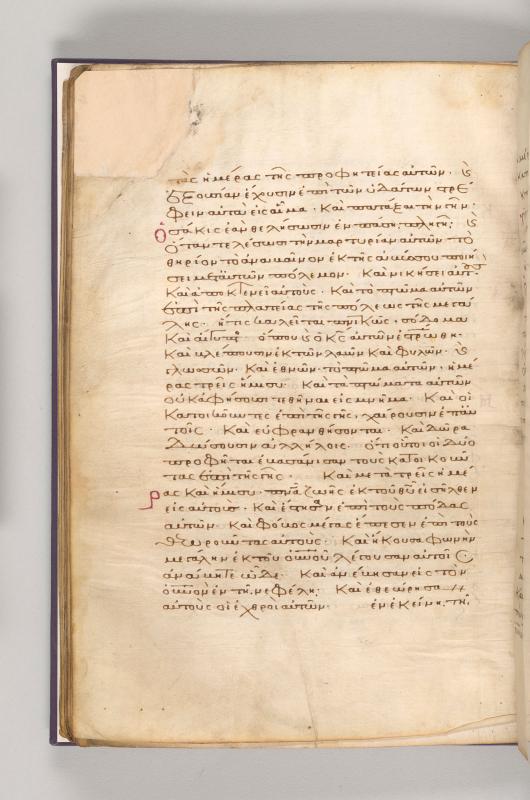 τὰς ἡμέρας τῆς προφητείας αὐτῶν. καὶ
ἐξουσίαν ἔχουσιν ἐπὶ τῶν ὑδάτων στρέ
φειν αὐτὰ εἰς αἷμα. Καὶ πατάξαι τὴν γῆν.
ὁσάκις ἐὰν θελήσωσιν ἐν πάσῃ πληγῇ. καὶ
ὅταν τελέσωσι τὴν μαρτυρίαν αὐτῶν τὸ
θηρίον τὸ ἀναβαῖνον ἐκ τῆς ἀβύσσου ποιή
σει μετ αὐτῶν πόλεμον. Καὶ νικήσει αὐτούς.
Καὶ ἀποκτενεῖ αὐτούς. Καὶ τὸ πτῶμα αὐτῶν
ἐπὶ τῆς πλατείας τῆς πόλεως τῆς μεγά
λης. ἥτις καλεῖται πνικῶς, σόδομα
Καὶ αἴγυπτος. ὅπου καὶ ὁ κς αὐτῶν ἐστρώθη.
Καὶ βλέπουσιν ἐκ τῶν λαῶν Καὶ φυλῶν. καὶ
γλωσσῶν. Καὶ ἐθνῶν. τὸ πτῶμα αὐτῶν. ἡμέ
ρας τρεῖς ἥμισυ. Καὶ τὰ πτώματα αὐτῶν
οὐκ ἀφήσουσι τεθῆναι εἰς μνῆμα. Καὶ οἱ
Κατοικοῦντες ἐπὶ τῆς γῆς, χαίρουσιν ἐπ αὐ
τοῖς. Καὶ εὐφρανθήσονται. Καὶ δῶρα
Δώσουσιν ἀλλήλοις. ὅτι οὗτοι οἱ δύο
προφῆται ἐβασάνισαν τοὺς κατοικοῦν
τας ἐπὶ τῆς γῆς. Καὶ μετὰ τρεῖς ἡμέ
ρας Καὶ ἥμισυ. πνα ζωῆς ἐκ τοῦ θυ εἰσῆλθεν
εἰς αὐτούς. Καὶ ἔστησαν ἐπὶ τοὺς πόδας
αὐτῶν. Καὶ φόβος μέγας ἔπεσεν ἐπὶ τοὺς
θεωροῦντας αὐτούς. Καὶ ἤκουσα φωνὴν
μεγάλην ἐκ τοῦ οὐνοῦ λέγουσαν αὐτοῖς
ἀνάβητε ὧδε. Καὶ ἀνέβησαν εἰς τὸν
οὐνὸν ἐν τῇ νεφέλῃ. Καὶ ἐθεώρησαν
αὐτοὺς οἱ ἐχθροὶ αὐτῶν. ἐν ἐκείνῃ τῇ